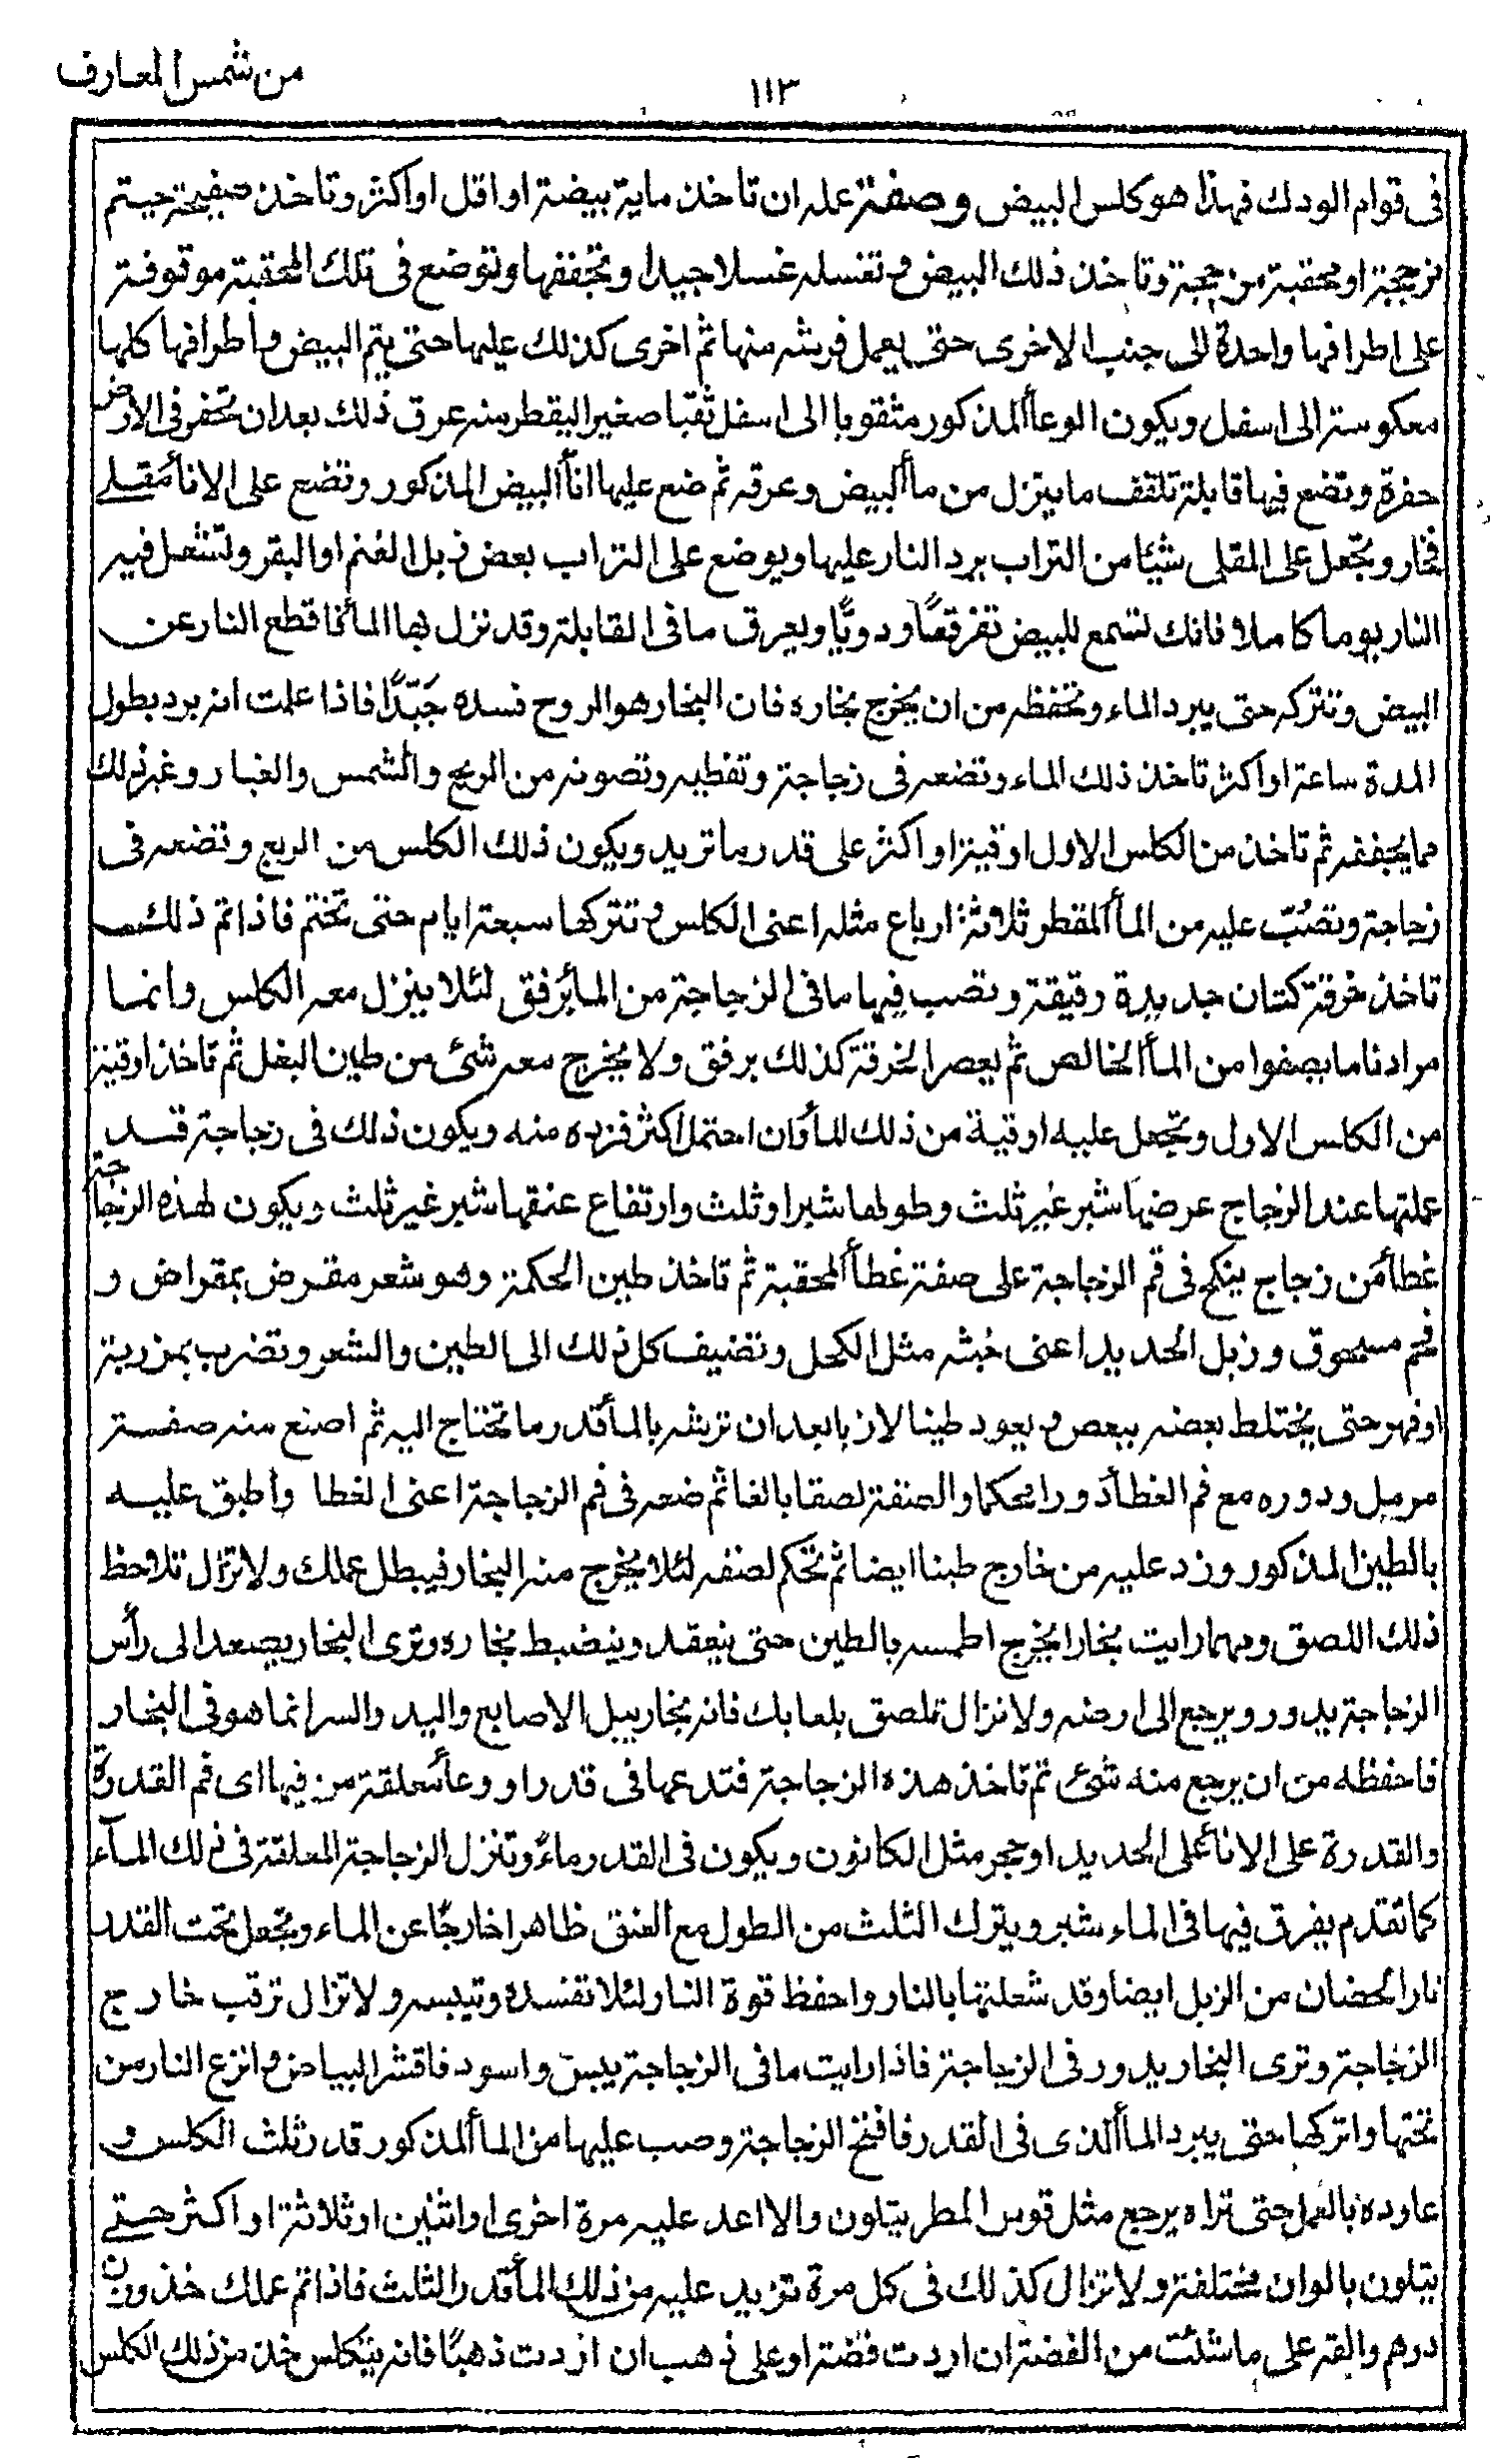 من شمس المعارف
١١٣
فى قوام الودك فهذا هو كلس البيض وصفة عمله ان تاخذ ماية بيضة او اقل او اكثر وتاخذ
او محقبة من وتاخذ ذلك البيض وتغسله غسلا جيدا وتجففها وتوضع فى تلك المحقبة موقوفة
على اطرافها واحدة الى جنب الاخرى حتى يعمل فرشه منها ثم اخرى كذلك عليها حتى يتم البيض واطرافها كلها
معكوسة الى اسفل ويكون الوعأ المذكور مثقوبا الى اسفل ثقبا صغيرا ليقطر منه عرق ذلك بعد ان تحفر فى الارض
حفرة وتضع فيها قابلة تلقف ما ينزل من مأ البيض وعرقه ثم ضع عليها انأ البيض المذكور وتضع على الانأ مقلے
فخار وتجعل على المقلى شيئا من التراب يرد النار عليها ويوضع على التراب بعض زبل الغنم او البقر وتشعل فيه
النار يوما كاملا فانك تسمع للبيض تفرقعًا ودويًا ويعرق ما فى القابلة وقد نزل بها المأ فاقطع النار عن
البيض وتتركه حتى يبرد الماء وتحفظه من ان يخرج بخاره فان البخار هو الروح فسده جَيّدًا فاذا علمت انه برد بطول
المدة ساعة او اكثر تاخذ ذلك الماء وتضعه فى زجاجة وتغطيه وتصونه من الريح والشمس والغبار وغير ذلك
مما يجففه ثم تاخذ من الكلس الاول اوقية او اكثر على قدر ما تريد ويكون ذلك الكلس من الربع وتضعه فى
زجاجة وتصُبّ عليه من المأ المقطر ثلاثة ارباع مثله اعنى الكلس وتتركها سبعة ايام حتى تختم فاذا تم ذلك
تاخذ خرقة كتان جديدة رقيقة وتصب فيها ما فى الزجاجة من المأ برفق لئلا ينزل معه الكلس وانما
مرادنا ما يصفوا من المأ الخالص ثم يعصر الخرقة كذلك برفق ولا يخرج معه شئ من طين البغل ثم تاخذ اوقية
من الكلس الاول وتجعل عليه اوقية من ذلك المأ وان احتمل اكثر فزده منه ويكون ذلك فى زجاجة قد
عملتها عند الزجاج عرضها شبر غير ثلث وطولها شبرا وثلث وارتفاع عنقها شبر غير ثلث ويكون لهذه الزجاجة
غطأ من زجاج ينكح فى فم الزجاجة على صفة غطأ المحقبة ثم تاخذ طين الحكمة وهو شعر مقرض بمقراض و
فحم مسحوق وزبل الحديد اعنى خبثه مثل الكحل وتضيف كل ذلك الى الطين والشعر وتضرب بمزربة
او فهر حتى يختلط بعضه ببعض ويعود طينا لازبا بعد ان ترشه بالمأ قدر ما تحتاج اليه ثم اصنع منه
ودوره مع فم الغطأ دورا محكما لصقا بالغا ثم ضعه فى فم الزجاجة اعنى الغطا واطبق عليه
بالطين المذكور وزد عليه من خارج طينا ايضا ثم تحكم لصقه لئلا يخرج منه البخار فيبطل عملك ولا تزال تلاحظ
ذلك اللصق ومهما رايت بخارا يخرج اطمسه بالطين حتى ينعقد وينضبط بخاره وترى البخار يصعد الى رأس
الزجاجة يدور ويرجع الى ارضه ولا تزال تلصق بلعابك فانه بخار يبل الاصابع واليد والسر انما هو فى البخار
فاحفظه من ان يرجع منه شئ ثم تاخذ هذه الزجاجة فتدعها فى قدر او وعأ معلقة من فيها اى فم القدرة
والقدرة على الانأ على الحديد او حجر مثل الكانون ويكون فى القدر ماء وتنزل الزجاجة المعلقة فى ذلك المآء
كما تقدم يغرق فيها فى الماء شبر ويترك الثلث من الطول مع العنق ظاهرا خارجًا عن الماء وتجعل تحت القدر
نار الحضان من الزبل ايضا وقد شعلتها بالنار واحفظ قوة النار لئلا تفسده وتيبسه ولا تزال ترقب خارج
الزجاجة وترى البخار يدور فى الزجاجة فاذا رايت ما فى الزجاجة يبس واسود فاقشر البياض وانزع النار من
تحتها واتركها حتى يبرد المأ الذى فى القدر فافتح الزجاجة وصب عليها من المأ المذكور قدر ثلث الكلس و
عاوده بالعمل حتى تراه يرجع مثل قوس المطر يتلون والا اعد عليه مرة اخرى او اثنين او ثلاثة او اكثر حتے
يتلون بالوان مختلفة ولا تزال كذلك فى كل مرة تزيد عليه من ذلك المأ قدر الثلث فاذا تم عملك خذ وزن
درهم والقه على ما شئت من الفضة ان اردت فضة او على ذهب ان اردت ذهبًا فانه يتكلس خذ من ذلك الكلس